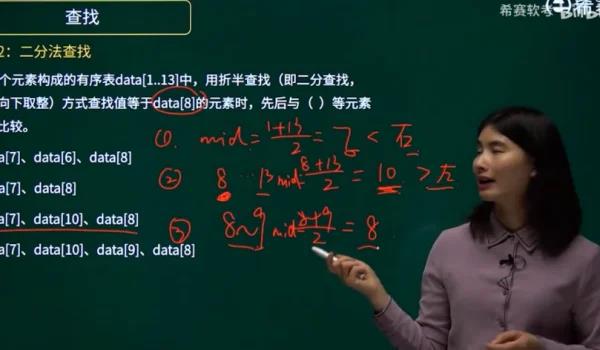 查找
希赛软考
2：二分法查找
个元素构成的有序表data[1..13]中，用折半查找（即二分查找，
向下取整）方式查找值等于data[8]的元素时，先后与（ ）等元素
比较。
① mid=1+13/2=7<右
a[7]、data[6]、data[8]
② 8…13 mid 8+13/2=10>左
a[7]、data[8]
a[7]、data[10]、data[8]
③ 8~9 mid 8+9/2=8
a[7]、data[10]、data[9]、data[8]